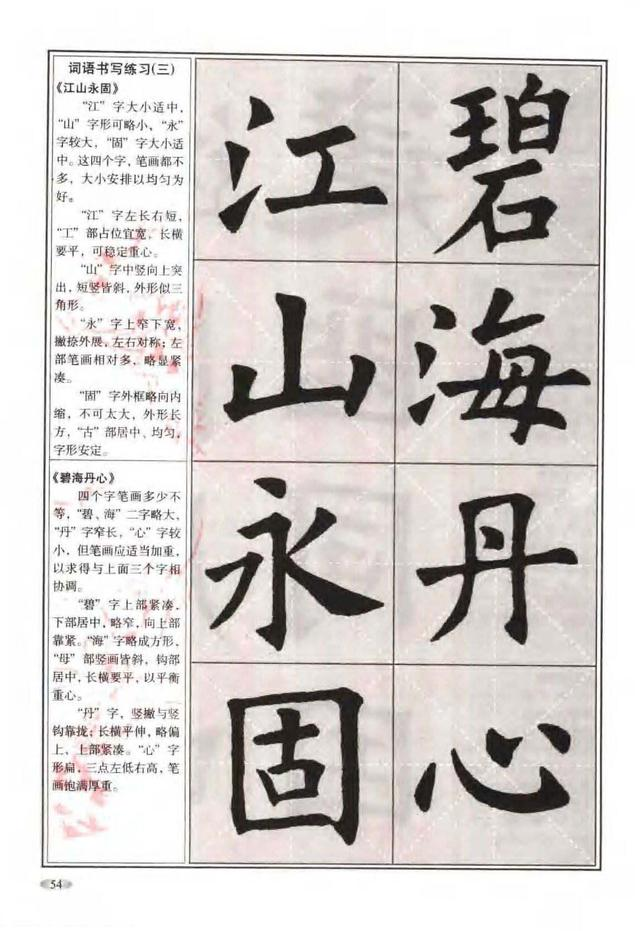 词语书写练习(三)
《江山永固》
“江”字大小适中,
“山”字形可略小、“永”
字较大,“固”字大小适
中。这四个字,笔画都不
多,大小安排以均匀为
好。
“江”字左长右短,
“工”部占位宜宽,长横
要平,可稳定重心。
“山”字中竖向上突
出,短竖皆斜,外形似三
角形。
“永”字上窄下宽,
撇捺外展,左右对称;左
部笔画相对多,略显紧
凑。
“固”字外框略向内
缩,不可太大,外形长
方,“古”部居中、均匀,
字形安定。
《碧海丹心》
四个字笔画多少不
等,“碧、海”二字略大,
“丹”字窄长,“心”字较
小,但笔画应适当加重,
以求得与上面三个字相
协调。
“碧”字上部紧凑,
下部居中,略窄,向上部
靠紧。“海”字略成方形,
“母”部竖画皆斜,钩部
居中,长横要平,以平衡
重心。
“丹”字,竖撇与竖
钩靠拢;长横平伸,略偏
上,上部紧凑。“心”字
形扁,三点左低右高,笔
画饱满厚重。
碧海丹心
江山永固
54